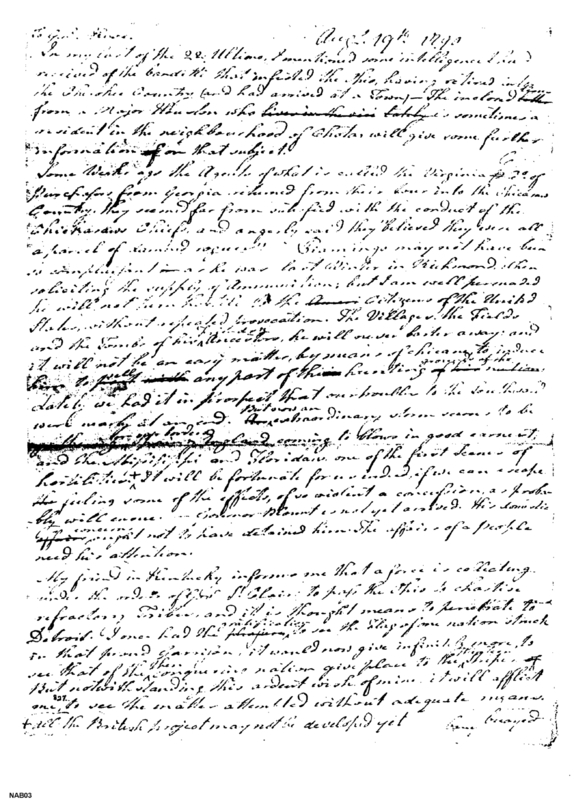 Augt. 19th 1790
In my last of the 22 Ultimo, I mentioned some intelligence I had
received of the banditti that infested the Ohio, having retired into
the Cherokee Country (and had arrived at a Town) — The inclosed letter
from a Major who lives in the lately is sometimes a
resident in the neighbourhood of Chota, will give some further
information on that subject.
Some Weeks ago the Agents of what is called the Virginia Co. of
Purchasers from Georgia returned from their tour into the Chicasaw
Country. they seemed far from satisfied with the conduct of the
Chickasaw Chiefs, and angerly said they believed they were all
a parcel of damned rogues. may not have been
so complaisant as he was last Winter in Richmond when
soliciting the supply of Ammunition; but I am well persuaded
he will not to the Citizens of the United
States, without repeated provocation. The Villages, the Fields
and the Tombs of his Ancestors, he will never barter away: and
it will not be an easy matter, by means of chicane, to induce
to any part of their hunting
Lately we had it in prospect that our troubles to the Southward
were nearly at an end. But now an extraordinary storm seems to be
coming to blow in good earnest,
and the Mississippi and Floridas one of the first scenes of
hostilities. + It will be fortunate for us indeed, if we can escape
feeling some of the effects, of so violent a concussion, as proba-
bly will ensue. — Governor Blount is not yet arrived. His domestic
concerns ought not to have detained him. The affairs of a people
need his attention.
My friend in Kentucky informs me that a force is collecting
under the orders of St. Clair; to pass the Ohio to chastise
refractory Tribes, and it is thought means to penetrate to
Detroit. I once had the gratification to see the Flag of one nation struck
in that proud Garrison; it would now give infinitely more, to
see that of the conquering nation give place to the Stripes
But notwithstanding this ardent wish of mine, it will afflict
me, to see the matter attempted without adequate means.
837.
+ all the British project may not be developed yet
NAB03